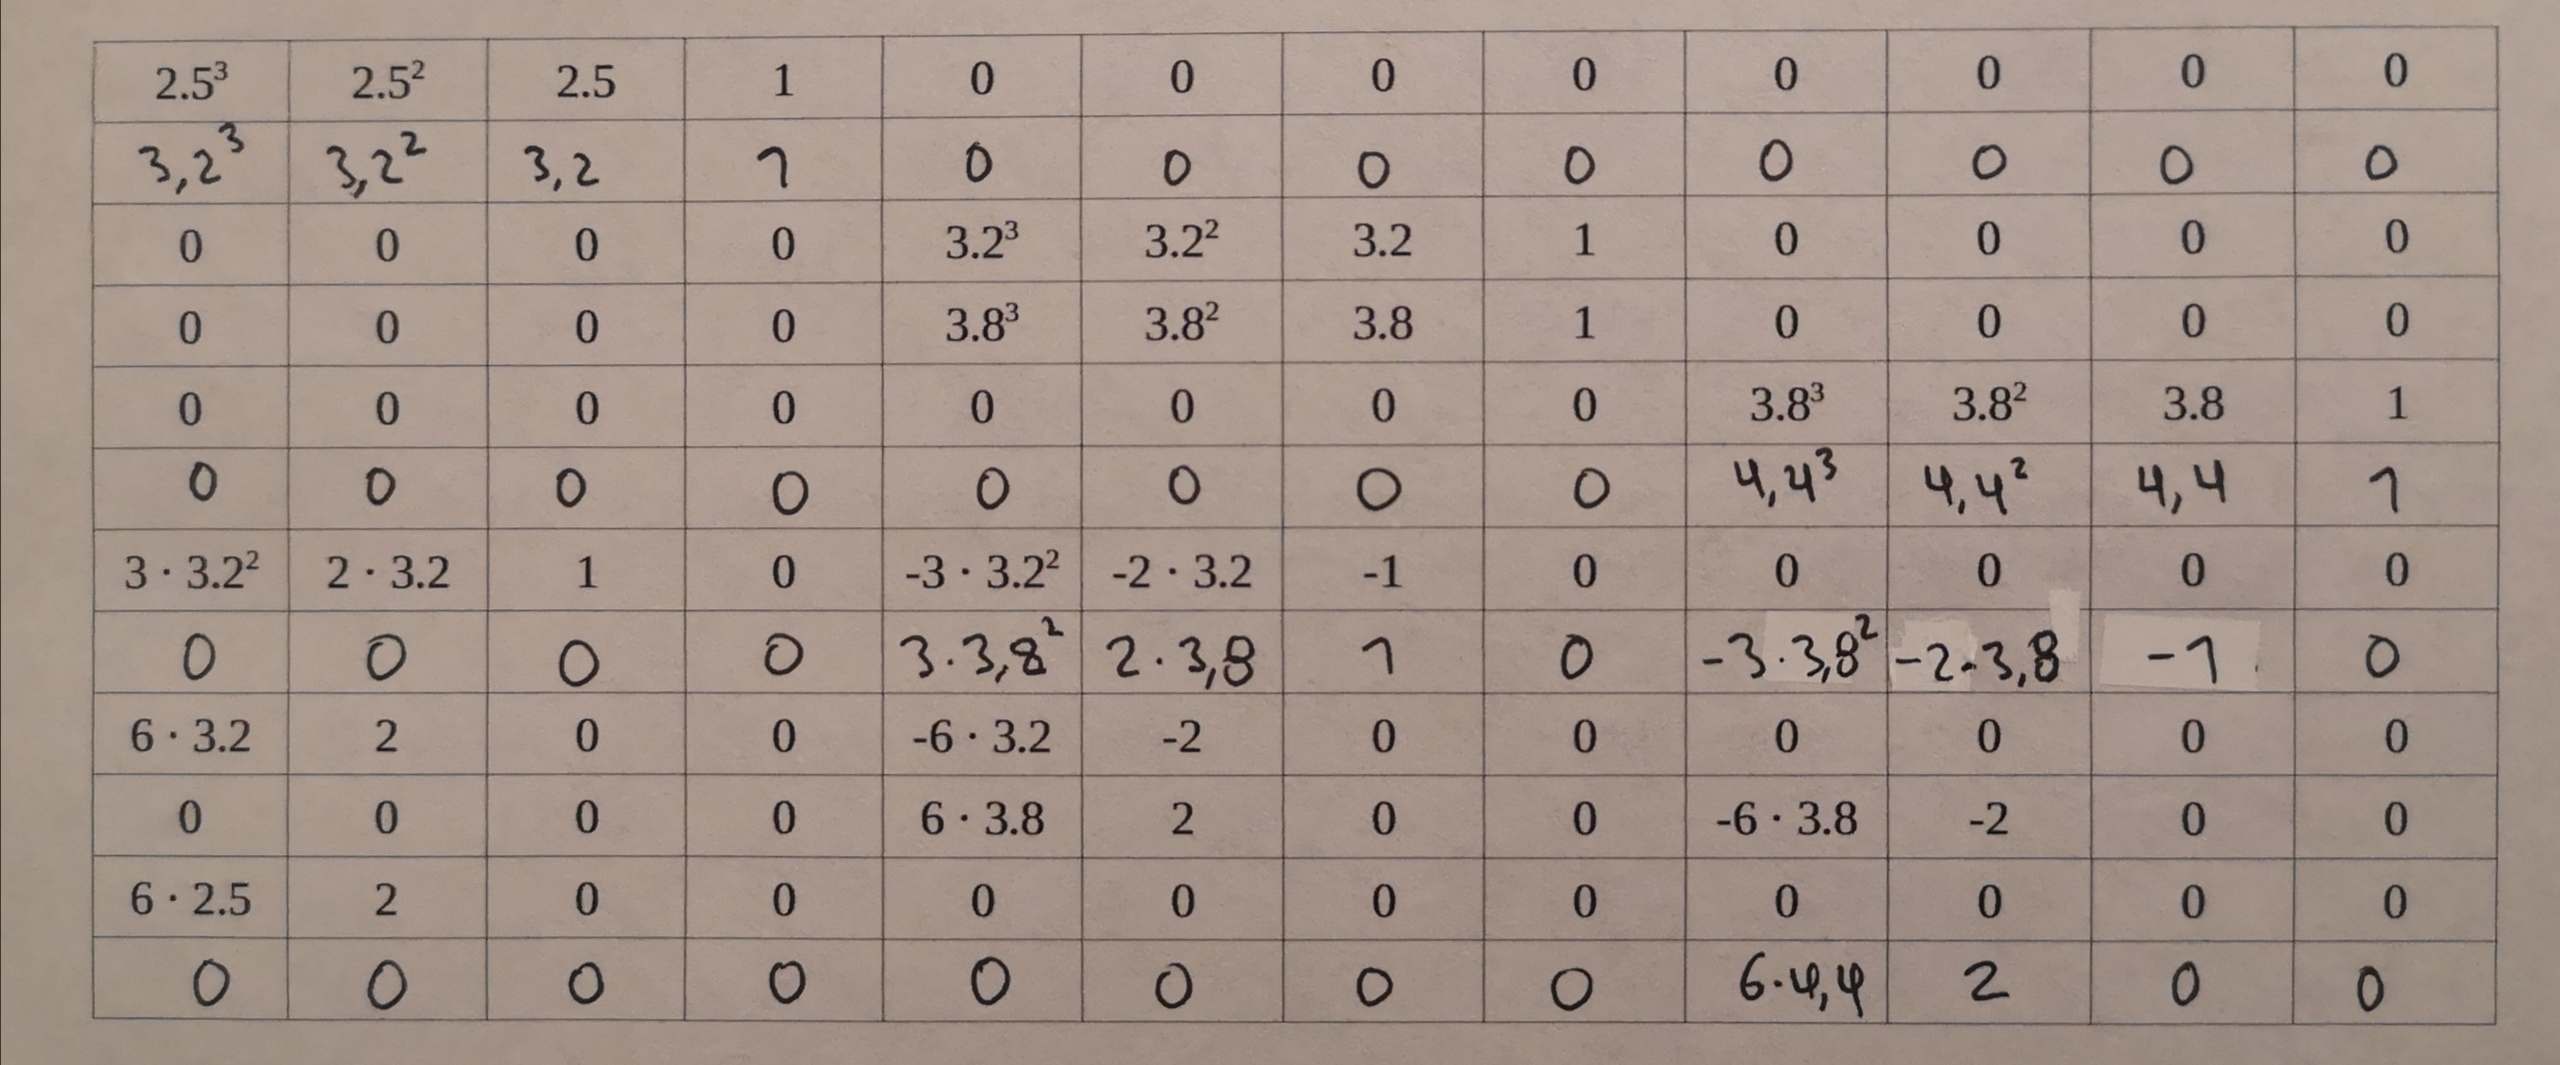 2.5³ 2.5² 2.5 1 0 0 0 0 0 0 0 0
3,2³ 3,2² 3,2 1 0 0 0 0 0 0 0 0
0 0 0 0 3.2³ 3.2² 3.2 1 0 0 0 0
0 0 0 0 3.8³ 3.8² 3.8 1 0 0 0 0
0 0 0 0 0 0 0 0 3.8³ 3.8² 3.8 1
0 0 0 0 0 0 0 0 4,4³ 4,4² 4,4 1
3 · 3.2² 2 · 3.2 1 0 -3 · 3.2² -2 · 3.2 -1 0 0 0 0 0
0 0 0 0 3·3,8² 2·3,8 1 0 -3·3,8² -2·3,8 -1 0
6 · 3.2 2 0 0 -6 · 3.2 -2 0 0 0 0 0 0
0 0 0 0 6 · 3.8 2 0 0 -6 · 3.8 -2 0 0
6 · 2.5 2 0 0 0 0 0 0 0 0 0 0
0 0 0 0 0 0 0 0 6·4,4 2 0 0